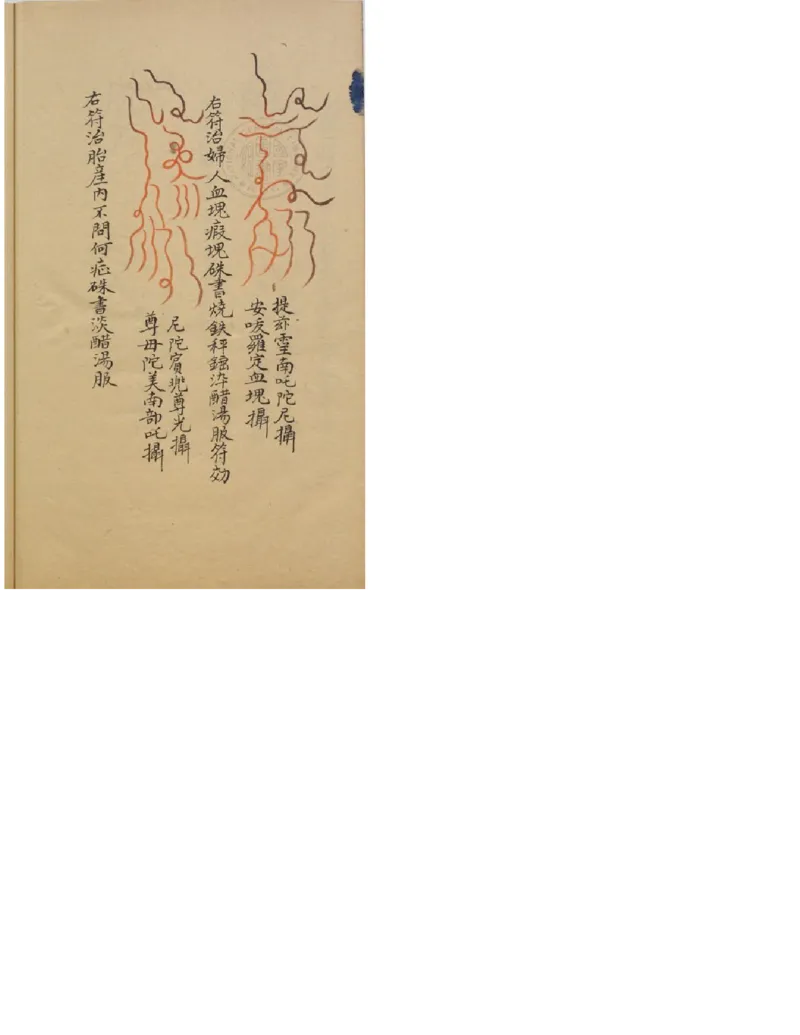 提亦霊南吒陀尼攝
安𠵽羅定血塊攝
右符治婦人血塊瘕塊硃書燒鉄秤錘淬醋湯服符効
尼陀賓兠尊光攝
尊毋陀美南部吒攝
右符治胎産内不問何症硃書淡醋湯服